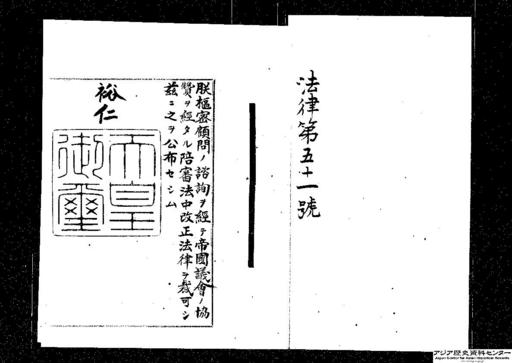 法律第五十一號
朕樞密顧問ノ諮詢ヲ經テ帝國議會ノ協
贊ヲ經タル陪審法中改正法律ヲ裁可シ
茲ニ之ヲ公布セシム
裕仁
天皇
御璽
アジア歴史資料センター
Japan Center for Asian Historical Records